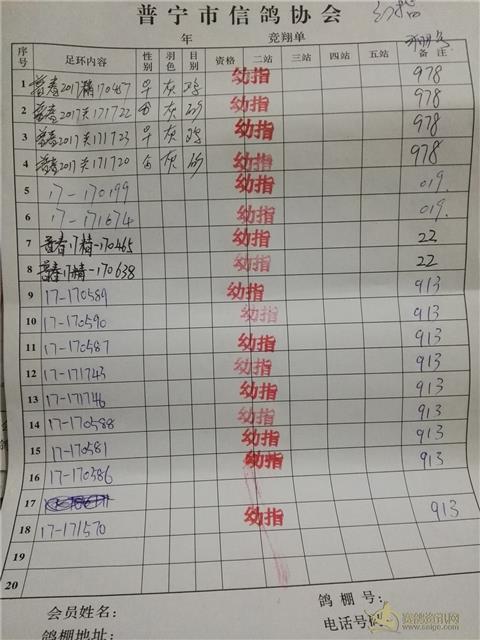 普宁市信鸽协会
年 竞翔单
序号 足环内容 性别 羽色 目别 资格 二站 三站 四站 五站 备注
1 普春2017精170457 早 灰 鸡 幼指 978
2 普春2017关171722 灰 砂 幼指 978
3 普春2017关171723 早 灰 鸡 幼指 978
4 普春2017关171720 灰 砂 幼指 978
5 17-170199 幼指 019.
6 17-171674 幼指 019.
7 普春17精-170465 幼指 22
8 普春17精-170638 幼指 22
9 17-170589 幼指 913
10 17-170590 幼指 913
11 17-170587 幼指 913
12 17-171743 幼指 913
13 17-171746 幼指 913
14 17-170588 幼指 913
15 17-170581 幼指 913
16 17-170586 幼指 913
17
18 17-171570 幼指 913
19
20
会员姓名： 鸽棚号：
鸽棚地址： 电话号码：
赛鸽资讯网
www.saige.com